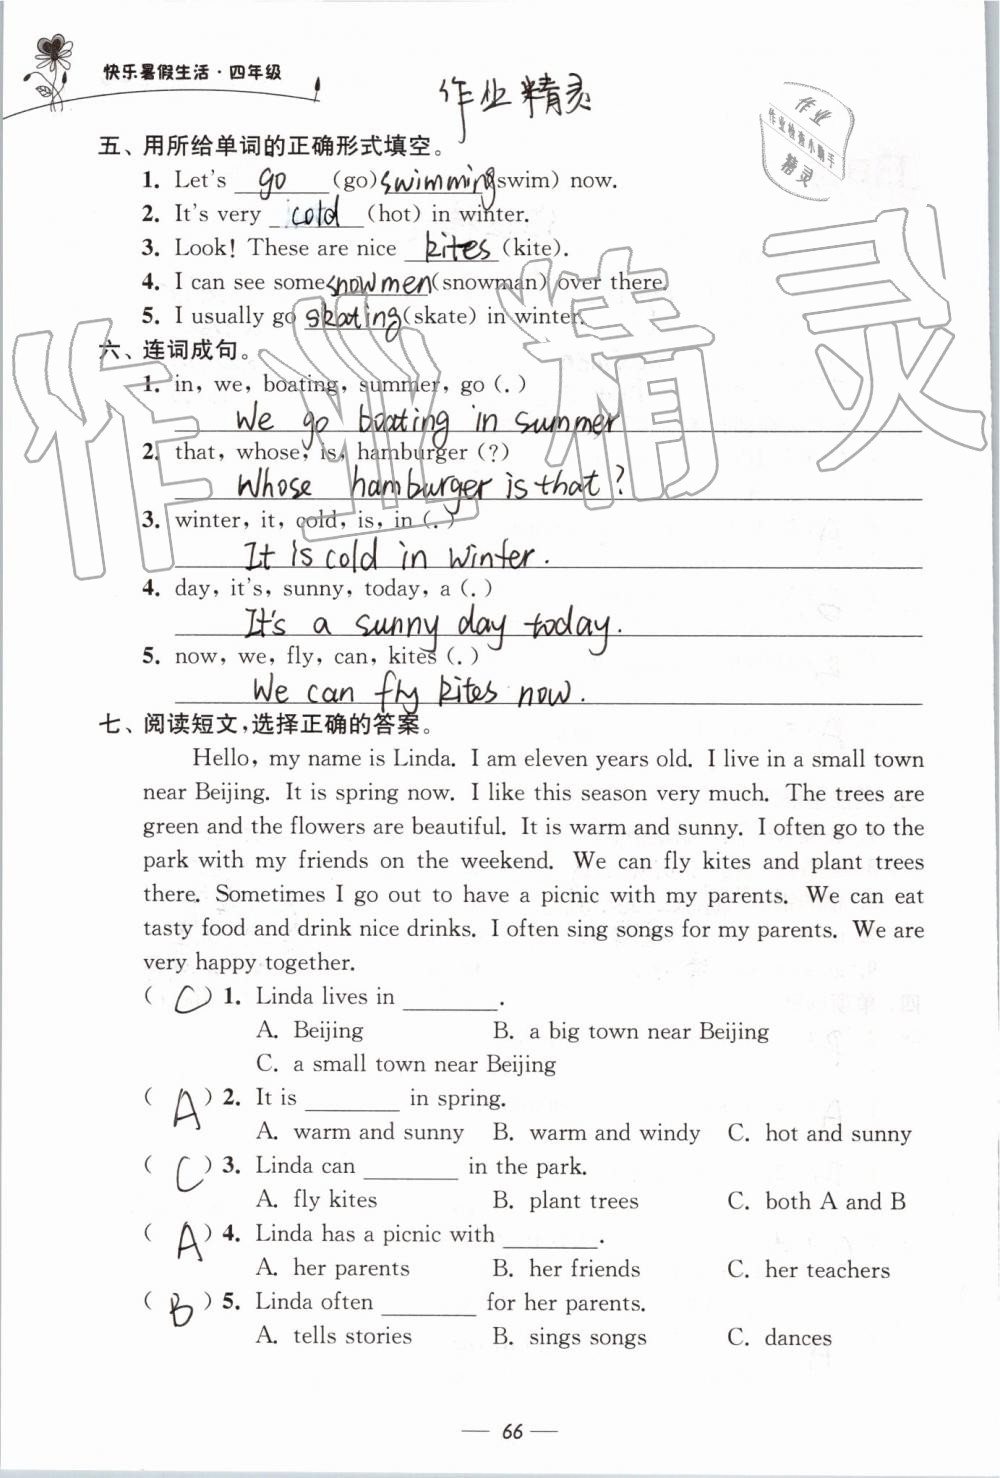 快乐暑假生活·四年级
作业精灵
作业
作业检查小助手
精灵
五、用所给单词的正确形式填空。
1. Let's go (go) swimming (swim) now.
2. It's very cold (hot) in winter.
3. Look! These are nice kites (kite).
4. I can see some snowmen (snowman) over there.
5. I usually go skating (skate) in winter.
六、连词成句。
1. in, we, boating, summer, go (.)
We go boating in summer
2. that, whose, is, hamburger (?)
Whose hamburger is that?
3. winter, it, cold, is, in (.)
It is cold in winter.
4. day, it's, sunny, today, a (.)
It's a sunny day today.
5. now, we, fly, can, kites (.)
We can fly kites now.
七、阅读短文,选择正确的答案。
Hello, my name is Linda. I am eleven years old. I live in a small town
near Beijing. It is spring now. I like this season very much. The trees are
green and the flowers are beautiful. It is warm and sunny. I often go to the
park with my friends on the weekend. We can fly kites and plant trees
there. Sometimes I go out to have a picnic with my parents. We can eat
tasty food and drink nice drinks. I often sing songs for my parents. We are
very happy together.
( C ) 1. Linda lives in ________.
A. Beijing B. a big town near Beijing
C. a small town near Beijing
( A ) 2. It is ________ in spring.
A. warm and sunny B. warm and windy C. hot and sunny
( C ) 3. Linda can ________ in the park.
A. fly kites B. plant trees C. both A and B
( A ) 4. Linda has a picnic with ________.
A. her parents B. her friends C. her teachers
( B ) 5. Linda often ________ for her parents.
A. tells stories B. sings songs C. dances
— 66 —
作业精灵